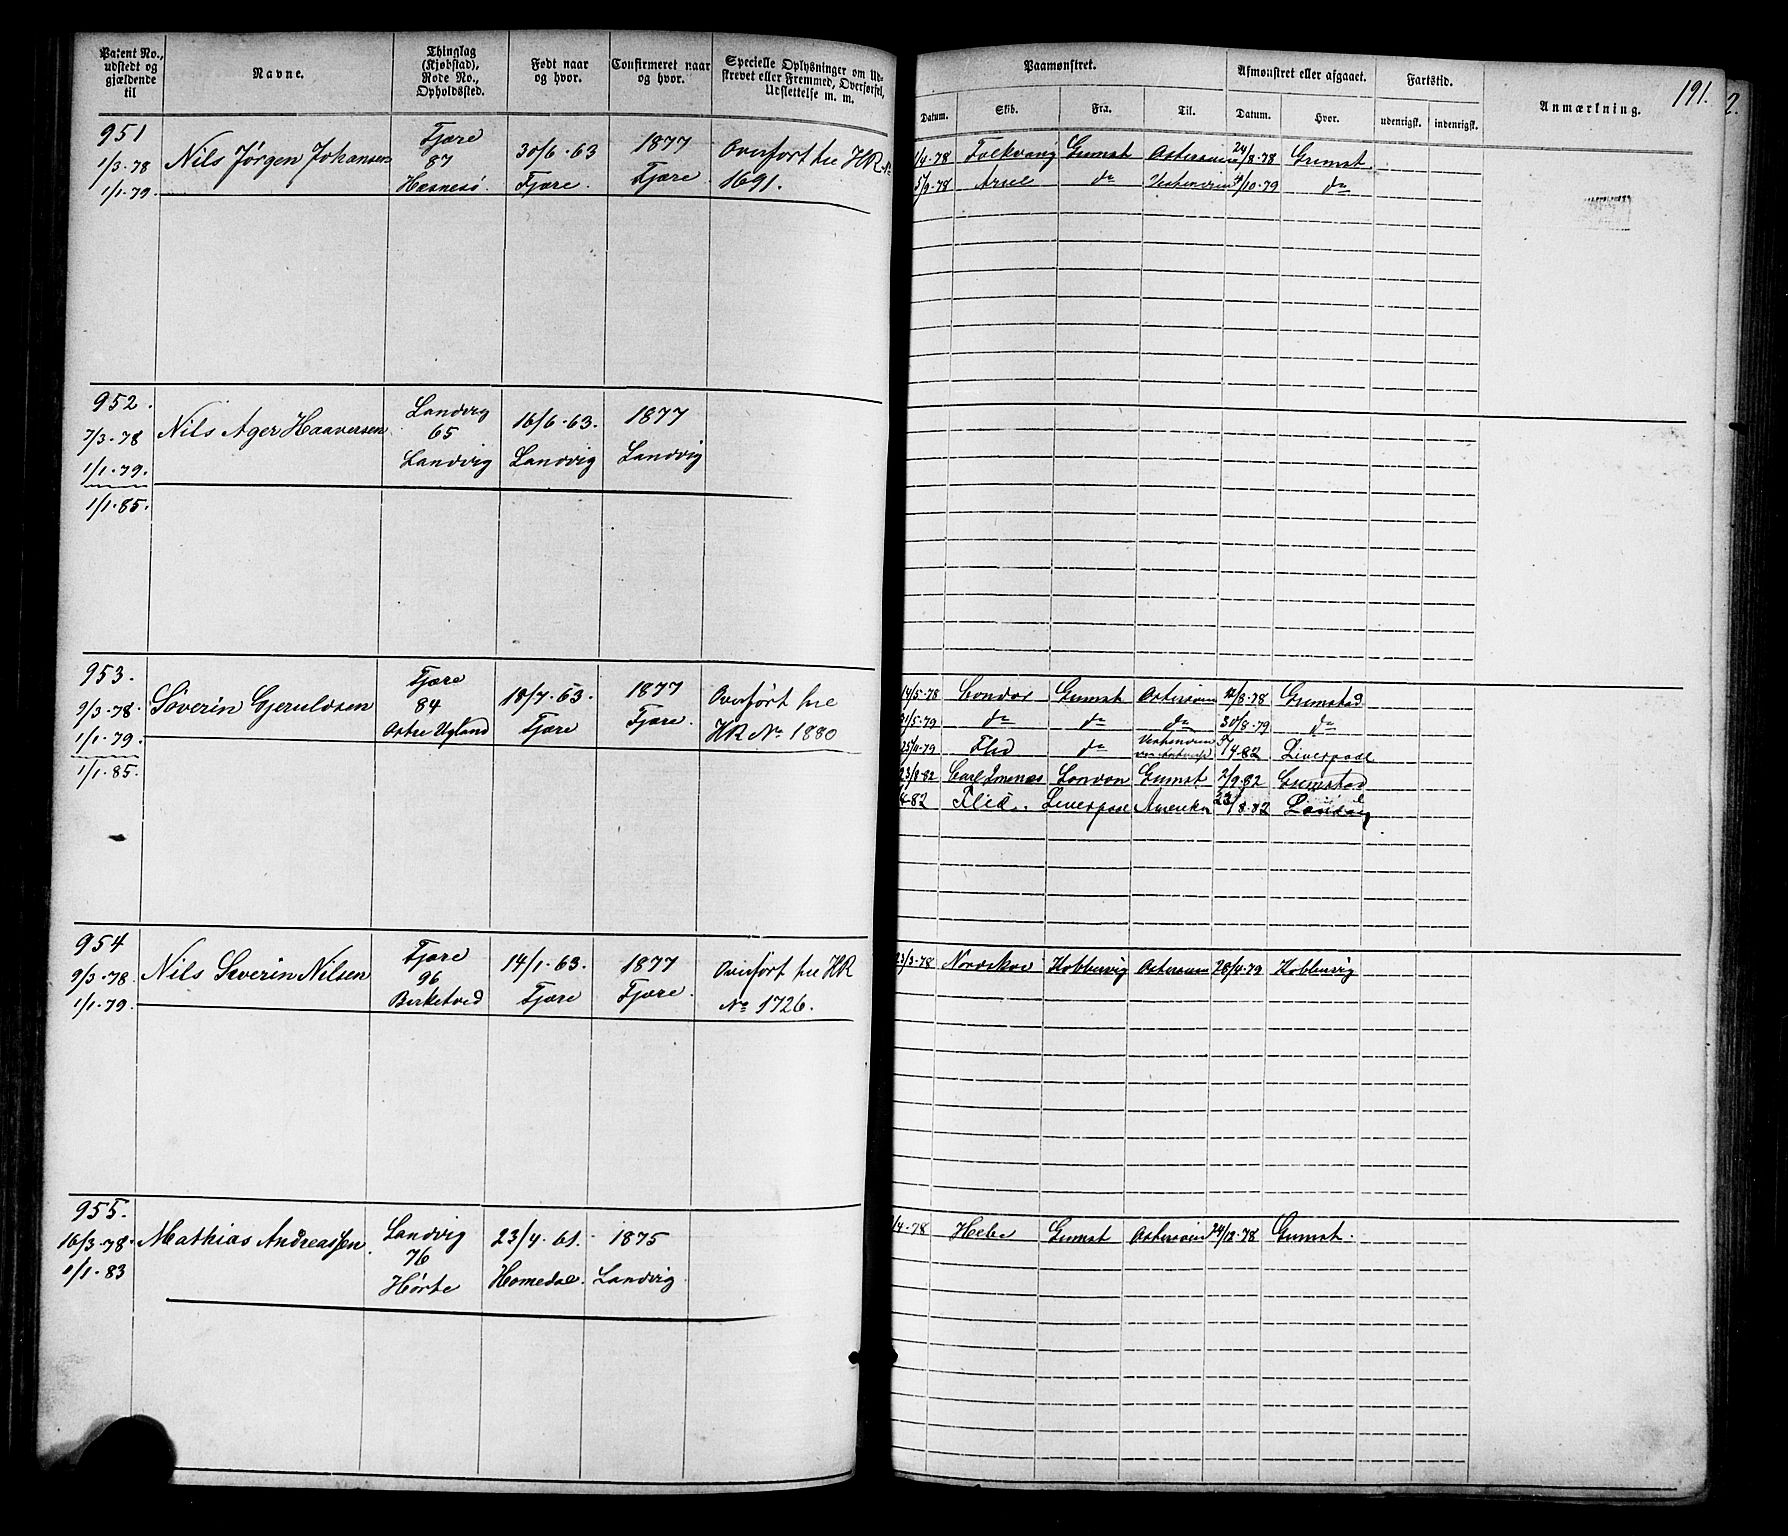 Patent No., udstedt og gjældende til
Navne.
Thinglag (Kjøbstad), Rode No., Opholdssted.
Født naar og hvor.
Confirmeret naar og hvor.
Specielle Oplysninger om Udskrevet eller Fremmed, Overførsel, Udslettelse m. m.
Paamønstret.
Afmønstret eller afgaaet.
Fartstid.
Anmærkning.
191.
2.
Datum.
Skib.
Fra.
Til.
Datum.
Hvor.
udenrigsk.
indenrigsk.
951
1/3-78
1/1-79.
Nils Jørgen Johansen
Fjære
87
Hæsnesø
30/6-63
Fjære.
1877
Fjære
Overført til HR No
1691.
1/4-78 Folkvang Grimst Østersøen 24/8-78 Grimst
5/9-78 do /10-79 do
952.
7/3-78
1/1-79.
1/1-85.
Nils Ager Haaversen
Landvig
65
Landvig
16/6-63.
Landvig
1877
Landvig
953.
9/3-78.
1/1-79.
1/1-85.
Søverin Gjeruldsen
Fjære
84
Østre Ugland
18/7-63.
Fjære
1877
Fjære.
Overført til
HR No 1880
14/5-78 Condor Grimst Østersøen /8-78 Grimstad
31/5-79 do do do 30/8-79 do
25/11-79 do 4-82 Liverpool
23/8-82 London Grimst 2/9-82 Grimstad
4-82 Liverpool Amerika 23/8-82 London
954
9/3-78.
1/1-79.
Nils Severin Nilsen
Fjære
96
Birketved
14/1-63.
Fjære
1877
Fjære.
Overført til HR
No 1726.
23/3-78 Nordskov Kobbervig Østersøen 28/4-79 Kobbervig
955.
16/3-78.
1/1-83
Mathias Andreassen
Landvig
76
Hørte
23/4-61.
Homedal.
1875
Landvig
/4-78 Hebe Grimst Østersøen 24/12-78 Grimst.